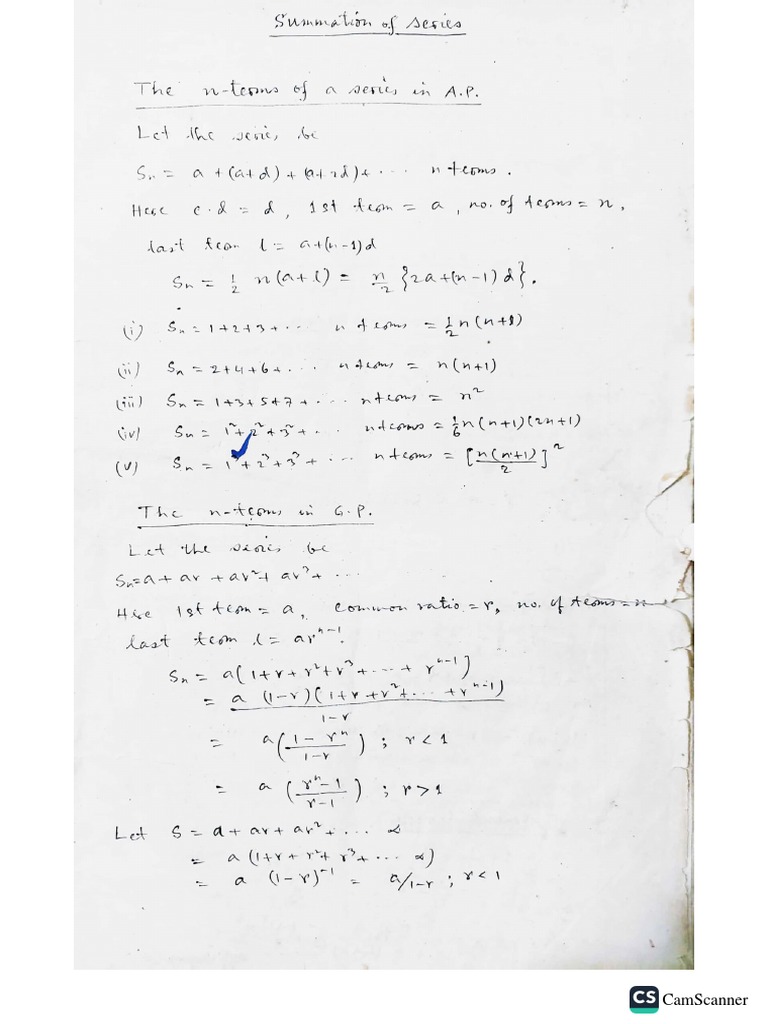 Summation of series
The n-terms of a series in A.P.
Let the series be
Sₙ = a + (a+d) + (a+2d) + ··· n terms.
Here c.d = d, 1st term = a, no. of terms = n,
last term l = a+(n-1)d
Sₙ = 1/2 n(a+l) = n/2 {2a+(n-1)d}.
(i) Sₙ = 1+2+3+··· n terms = 1/2 n(n+1)
(ii) Sₙ = 2+4+6+··· n terms = n(n+1)
(iii) Sₙ = 1+3+5+7+··· n terms = n²
(iv) Sₙ = 1²+2²+3²+·· n terms = 1/6 n(n+1)(2n+1)
(v) Sₙ = 1³+2³+3³+ ··· n terms = [n(n+1)/2]²
The n-terms in G.P.
Let the series be
Sₙ = a + ar + ar² + ar³ + ···
Here 1st term = a, common ratio = r, no. of terms = n
last term l = arⁿ⁻¹.
Sₙ = a[1+r+r²+r³+···+ rⁿ⁻¹]
= a (1-r)(1+r+r²+···+rⁿ⁻¹) / 1-r
= a(1-rⁿ/1-r) ; r<1
= a (rⁿ-1/r-1) ; r>1
Let S = a + ar + ar² + ··· ∞
= a (1+r+r²+r³+··· ∞)
= a (1-r)⁻¹ = a/1-r ; r<1
CS CamScanner